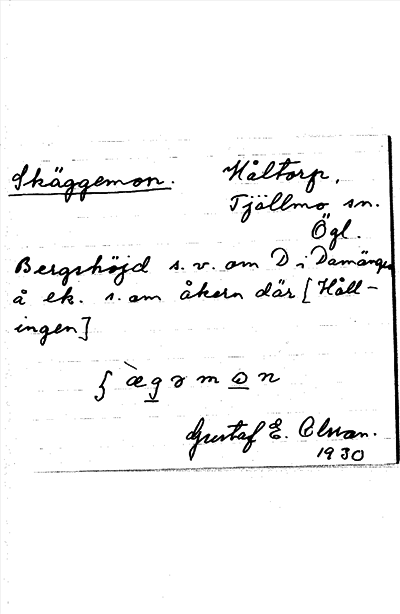 Skäggemon. Håltorp,
Tjällmo sn.
Ögl.
Bergshöjd s.v. om D i Damängen
å ek. s. om åkern där [Håll-
ingen]
ʃ æ̀gəmɷn
Gustaf E. Olsson.
1930